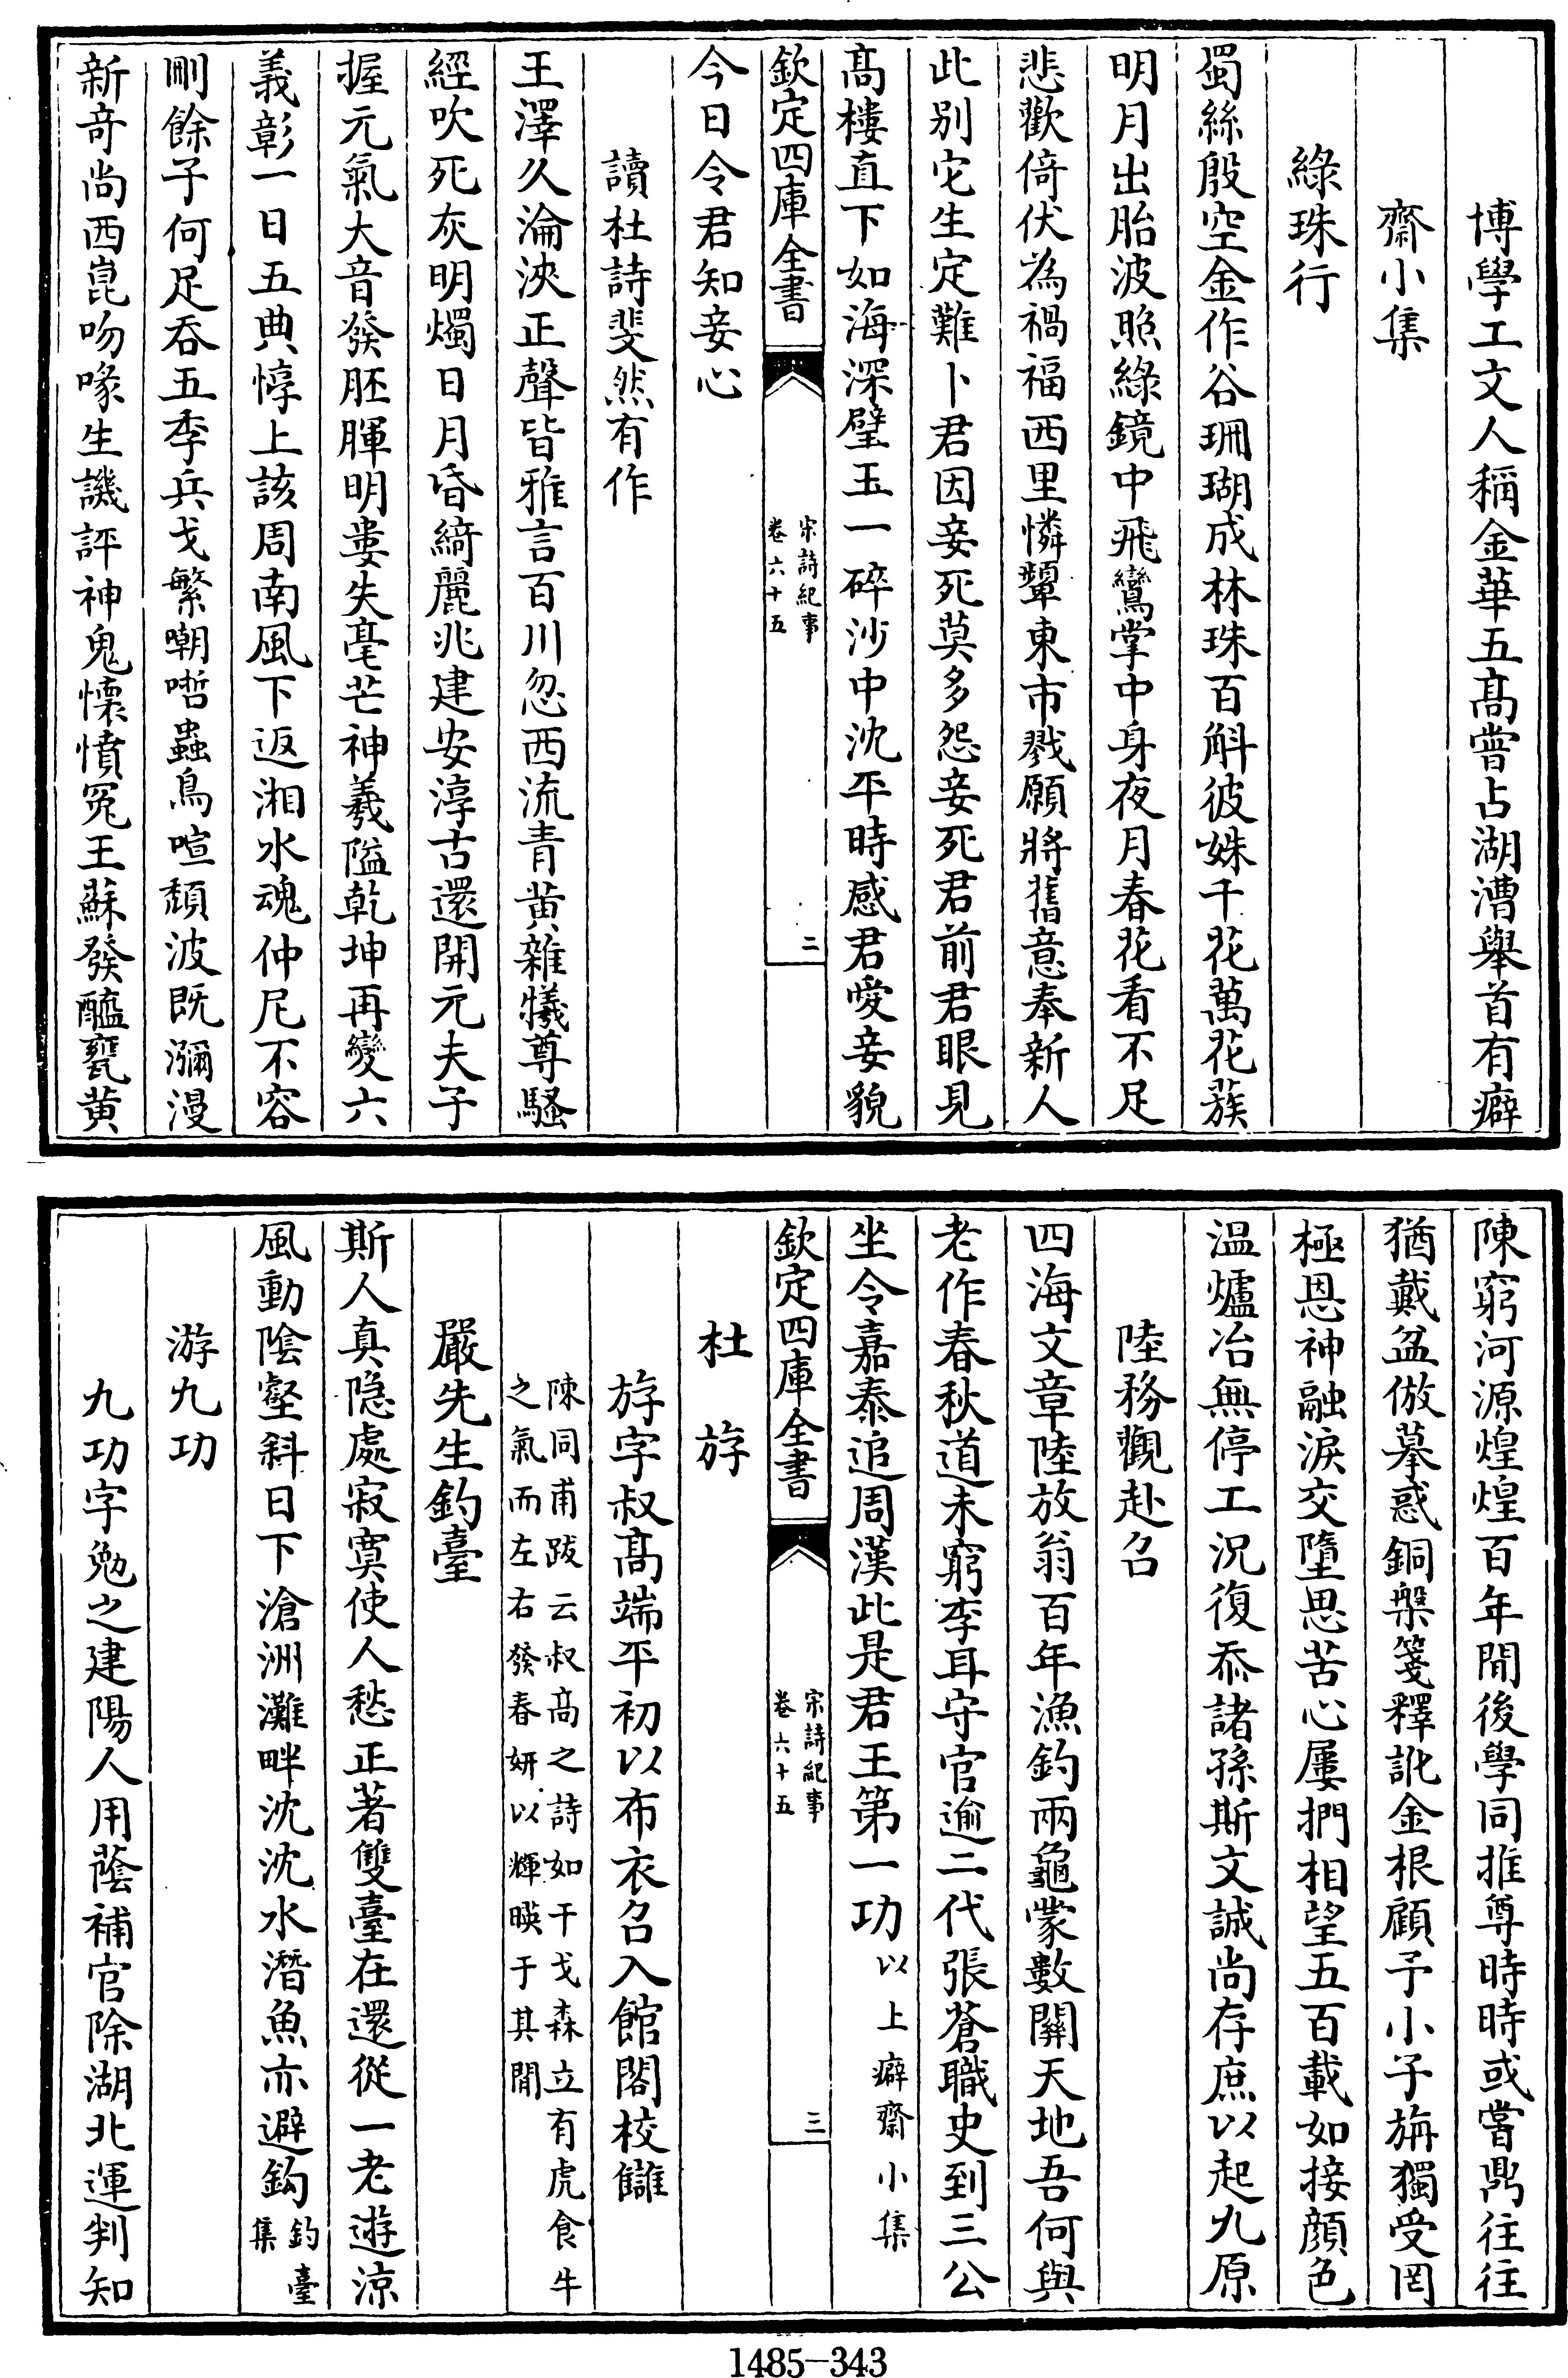 博學工文人稱金華五高嘗占湖漕舉首有癖
齋小集
綠珠行
蜀絲殷空金作谷珊瑚成林珠百斛彼姝千花萬花蔟
明月出胎波照綠鏡中飛鸞掌中身夜月春花看不足
悲歡倚伏為禍福西里憐顰東市戮願將舊意奉新人
此别它生定難卜君因妾死莫多怨妾死君前君眼見
髙樓直下如海深璧玉一碎沙中沈平時感君愛妾貌
欽定四庫全書
宋詩紀事
卷六十五
二
今日令君知妾心
讀杜詩斐然有作
王澤久淪泱正聲皆雅言百川忽西流青黄雜犧尊騷
經吹死灰明燭日月昏綺麗兆建安淳古還開元夫子
握元氣大音發胚腪明婁失毫芒神羲隘乾坤再變六
義彰一日五典惇上該周南風下返湘水魂仲尼不容
刪餘子何足吞五季兵戈繁嘲哳蟲鳥喧頽波既瀰漫
新奇尚西崑吻喙生譏評神鬼懷憤冤王蘇發醯甕黄
陳窮河源煌煌百年間後學同推尊時時或嘗鼎往往
猶戴盆倣摹惑銅槃箋釋訛金根顧予小子旃獨受罔
極恩神融淚交墮思苦心屢捫相望五百載如接顔色
温爐冶無停工況復忝諸孫斯文誠尚存庶以起九原
陸務觀赴召
四海文章陸放翁百年漁釣兩龜蒙數關天地吾何與
老作春秋道未窮李耳守官逾二代張蒼職史到三公
坐令嘉泰追周漢此是君王第一功以上癖齋小集
欽定四庫全書
宋詩紀事
卷六十五
三
杜斿
斿字叔髙端平初以布衣召入館閣校讎
陳同甫跋云叔髙之詩如干戈森立有虎食牛
之氣而左右發春妍以輝暎于其間
嚴先生釣臺
斯人真隐處寂寞使人愁正著雙臺在還從一老遊凉
風動陰壑斜日下滄洲灘畔沈沈水潛魚亦避鈎釣臺
集
游九功
九功字勉之建陽人用蔭補官除湖北運判知
1485-343